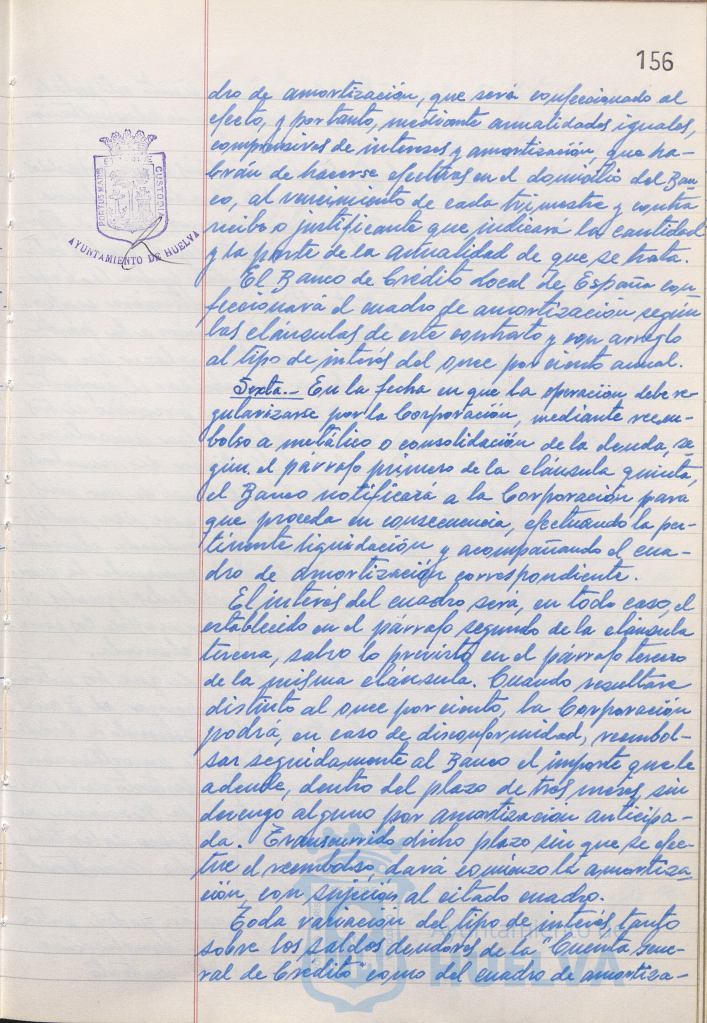 156
dro de amortización, que será confeccionado al
efecto, y por tanto, mediante anualidades iguales,
comprensivas de intereses y amortización, que ha-
brán de hacerse efectivas en el domicilio del Ban-
co, al vencimiento de cada trimestre y contra
recibo o justificante que indicará la cantidad
y la parte de la actualidad de que se trata.
El Banco de Crédito Local de España con
feccionará el cuadro de amortización según
las cláusulas de este contrato y con arreglo
al tipo de interés del once por ciento anual.
Sexta.- En la fecha en que la operación debe re-
gularizarse por la Corporación, mediante reem-
bolso a metálico o consolidación de la deuda, se-
gún el párrafo primero de la cláusula quinta,
el Banco notificará a la Corporación para
que proceda en consecuencia, efectuando la per-
tinente liquidación y acompañando el cua-
dro de amortización correspondiente.
El interés del cuadro será, en todo caso, el
establecido en el párrafo segundo de la cláusula
tercera, salvo lo previsto en el párrafo tercero
de la misma cláusula. Cuando resultare
distinto al once por ciento, la Corporación
podrá, en caso de disconformidad, reembol-
sar seguidamente al Banco el importe que le
adeude, dentro del plazo de tres meses, sin
devengo alguno por amortización anticipa-
da. Transcurrido dicho plazo sin que se efec-
tue el reembolso, dará comienzo la amortiza-
ción, con sujeción al citado cuadro.
Toda variación del tipo de interés, tanto
sobre los saldos deudores de la "Cuenta Gene-
ral de Crédito" como del cuadro de amortiza-
PORTUS MARIS
CUSTODIA
AYUNTAMIENTO DE HUELVA
Ayuntamiento de
HUELVA